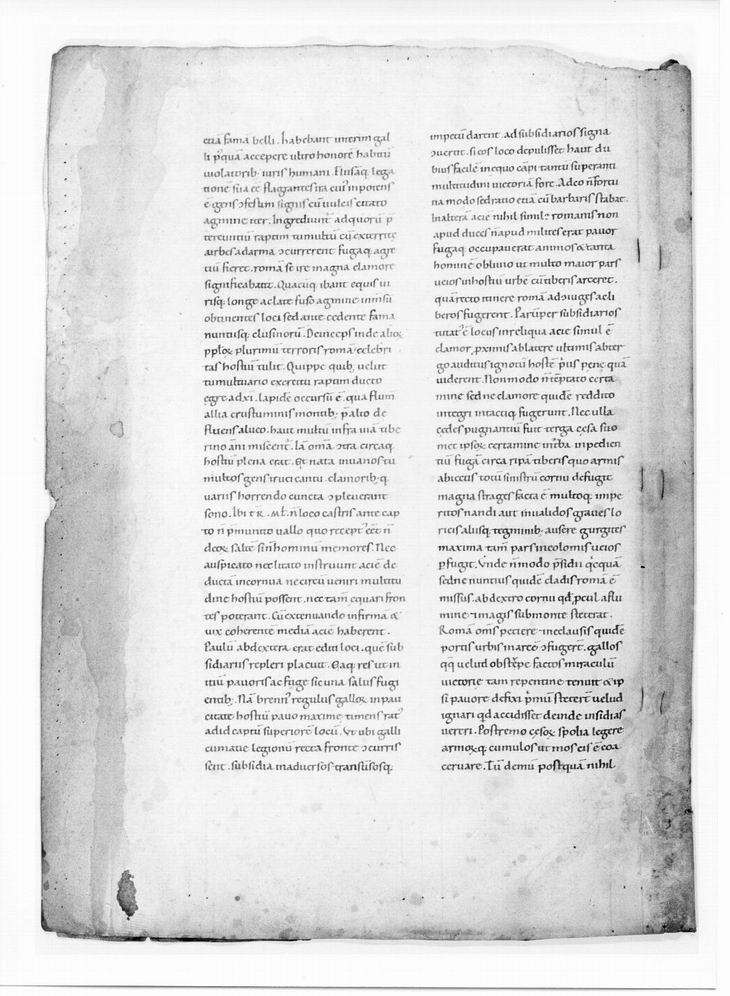 etiā fama belli . habebant interim gal
li pꝰquā accepere ultro honorē habitū
uiolatorib; iuris humani . elusāq; lega
tionē suā eē flagrantes ira cuiꝰ inpotens
ē gens ɔfestim signis cūuulsis citato
agmine iter . Ingrediunt adquorū p̄
tereuntiū raptim tumultū cū exterrite
urbes adarma ɔcurrerent fugaq; agre
tiū fieret . romā se ire magna clamore
significabant . Quacūq; ibant equis ui
risq; longe ac late fuso agmine inmsū
obtinentes loci sed ante cedente fama
nuntiisq; clusinorū . Deinceps inde alioꝝ
pploꝝ plurimū terroris romā celebri
tas hostiū tulit . Quippe quib; uelut
tumultuario exercitu raptim ducto
ęgre adxi . lapidē occursū ē . qua flum
allia crustuminis montib; p̄alto de
fluens alueo . haut multū infra uiā tibe
rino āni miscent . Iā omā ɔtra circaq;
hostiū plena erat . Et nata inuanos tu
multos gens truci cantu . clamorib; q;
uariis horrendo cuncta ɔpleuerant
sono . Ibi tr̄ . mł . ñ loco castris ante cap
to ñ p̄munito uallo quo recept eēt ñ
deoꝝ saltē siñ hominū memores . Nec
auspicato nec litato instruunt aciē de
ductā incornua ne circū ueniri multitu
dine hostiū possent . nec tam̄ equari fron
tes poterant . Cū extenuando infirmā &
uix coherentē mediā aciē haberent .
Paulū abdextera erat editi loci . quē sub
sidiariis repleri placuit . Eaq; res ut in
itiū pauoris ac fuge sic una salus fugi
entib; . Nā brennꝰ regulus galloꝝ in pau
citate hostiū pauo maxime timens ratꝰ
ad id captū superiorē locū . Ut ubi galli
cum acie legionū recta fronte ɔcurris
sent . subsidia inaduersos transūsosq;
impetū darent . ad subsidiarios signa
ɔuertit . si eos loco depulisset haut du
bius facilē inequo cāpi tantū superanti
multitudini uictoriā fore . Adeo ñ fortu
na modo sed ratio etiā cū barbaris stabat .
In altera acie nihil simile romanis non
apud duces ñ apud milites erat pauor
fugaq; occupauerat animos & tanta
homin ē obliuio ut multo maior pars
ueios inhostiū urbē cū tiberis arceret .
quā recto itinere romā ad ɔiuges ac li
beros fugerent . Parūper subsidiarios
tutatꝰ ē locus inreliqua acie simul ē
clamor p̱ximis ab latere ultimis abter
go auditus ignotū hostē p̄ius pene quā
uiderent . Non modo ñ tēptato certa
mine sed ne clamore quidē reddito
integri intactiq; fugerunt . Nec ulla
cedes pugnantiū fuit terga cęsa suo
met ipsoꝝ certamine inꝰrba inpedien
tiū fugā circa ripā tiberis quo armis
abiectis totū sinistrū cornu defugit
magna strages facta ē multosq; impe
ritos nandi aut inualidos graues lo
ricis aliisq; tegminib; ausere gurgites
maxima tam̄ pars incolomis ueios
p̱fugit . Unde ñ modo p̄sidii qͥcquā
sed ne nuntius quidē cladis romā ē
missus . ab dextro cornu qd̄ p̱cul a flu
mine ⁊ magis sub monte steterat .
Romā om̄s petiere ⁊ neclausis quidē
portis urbis inarcē ɔfugerꝰ . gallos
qͥq; uelud obstꝰpe factos miraculū
uictorie tam repentine tenuit & ip
si pauore defixi p̄mū steterꝰ uelud
ignari qd̄ accidisset deinde insidias
uereri . Postremo cęsoꝝ spolia legere
armoꝝq; cumulos ut mos eis ē coa
ceruare . Tū demū postquā nihil